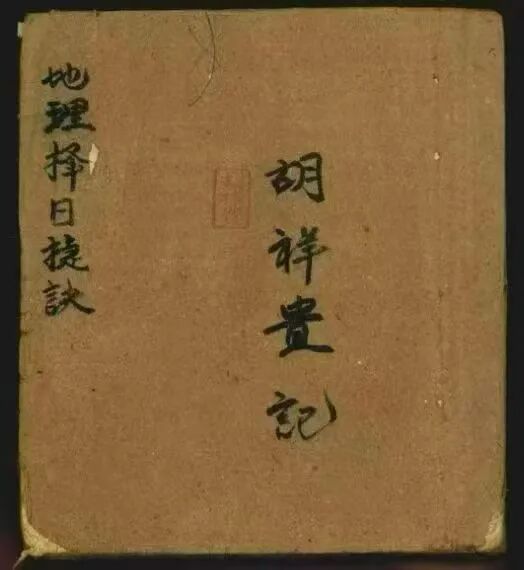 胡祥貴記
地理择日捷訣